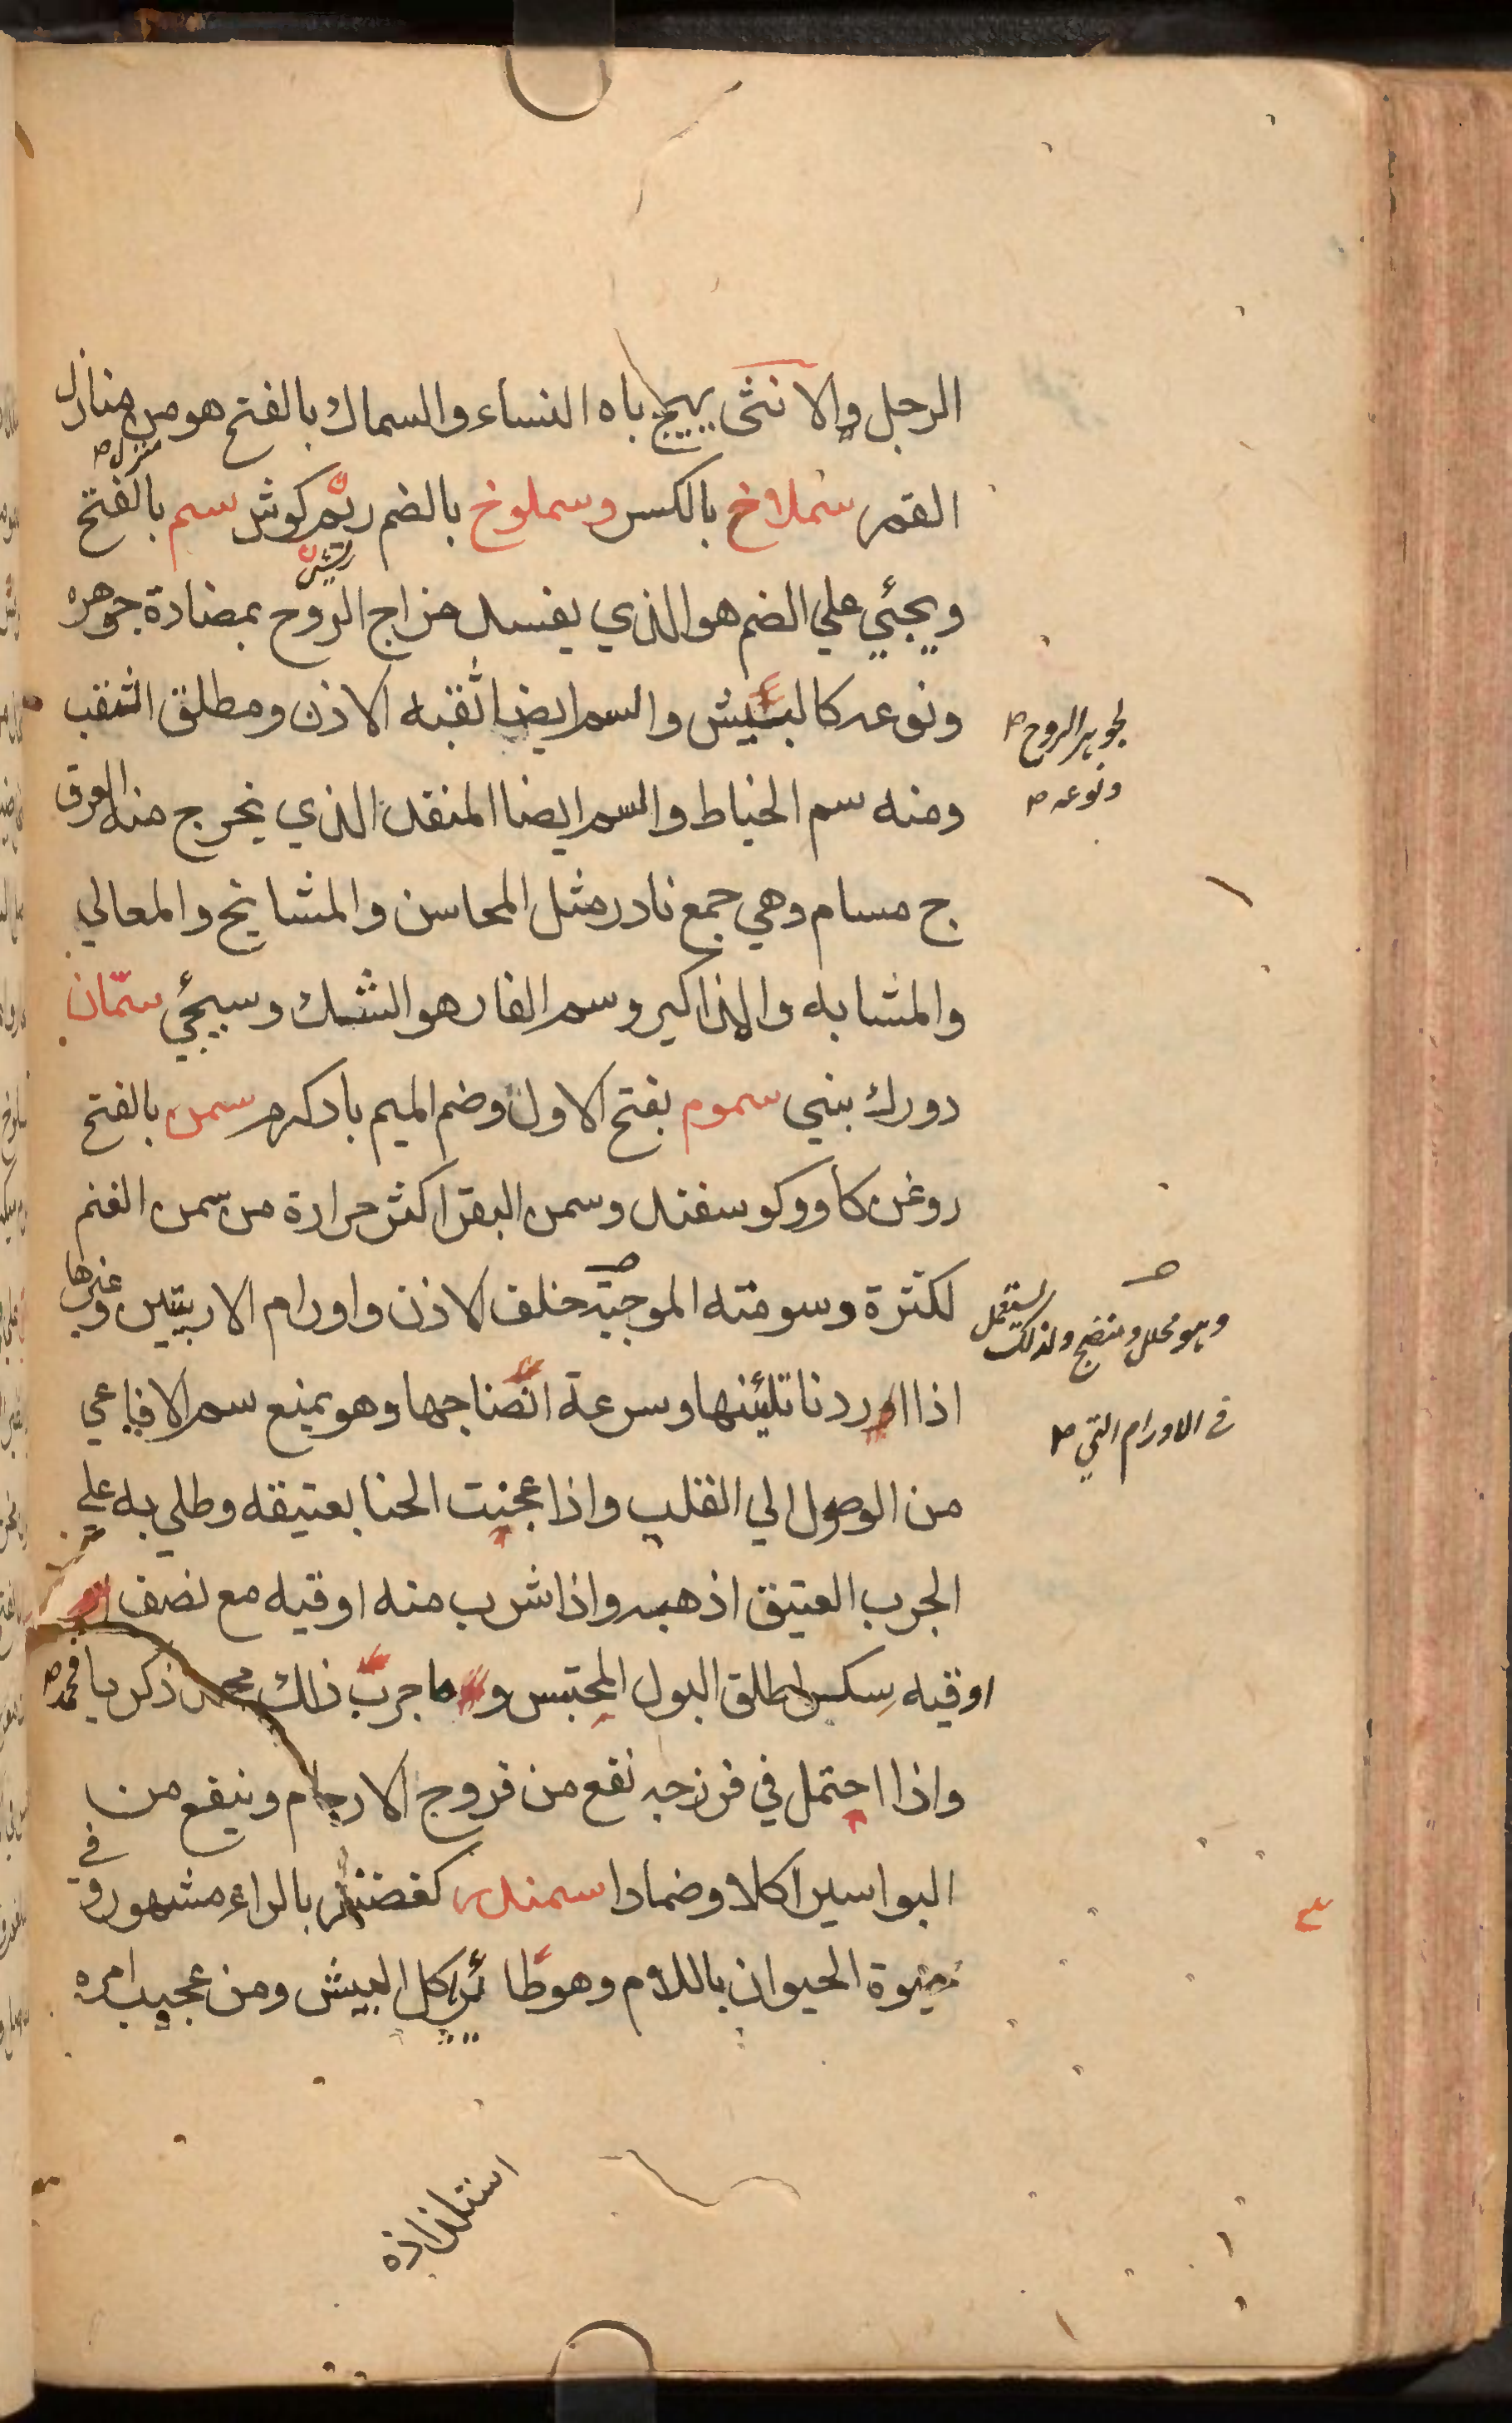 الرجل والانثى يهيج باه النساء والسماك بالفتح هو من منازل
منزل ص
القمر سملاخ بالكسر وسملوخ بالضم ريم كوش سم بالفتح
ويجئي علي الضم هو الذي يفسد مزاج الروح بمضادة جوهره
ونوعه كالبيش والسم ايضا ثقبه الاذن ومطلق الثقب
لجوهر الروح ص
ونوعه ص
ومنه سم الخياط والسم ايضا المنقذ الذي يخرج منه العرق
ج مسام وهي جمع نادر مثل المحاسن والمشايخ والمعالي
والمشابه والمذاكير وسم الفار هو الشك وسيجئي سمّان
دورك بنيي سموم بفتح الاول وضم الميم باد كرم سمن بالفتح
روغن كاو وكوسفند وسمن البقر اكثر حرارة من سمن الغنم
لكثرة وسومته الموجبة خلف الاذن واورام الاربتين وغيرها
وهو محلل ومنضج ولذلك يستعمل
في الاورام التي ص
اذا اردنا تلئينها وسرعة انضاجها وهو يمنع سم الافاعي
من الوصول الي القلب واذا عجنت الحنا بعتيقه وطلي به علي
الجرب العتيق اذهبه واذا شرب منه اوقيه مع نصف
اوقيه سكر اطلق البول المحتبس و ما جربّ ذلك محمد ذكريا
محمد ص
واذا احتمل في فرزجه نفع من قروح الارحام وينفع من
البواسير اكلا وضمادا سمندر كغضنفر بالراء مشهور وفي
حيوة الحيوان باللام وهو طائر ياكل البيش ومن عجيب امره
استلذاذه